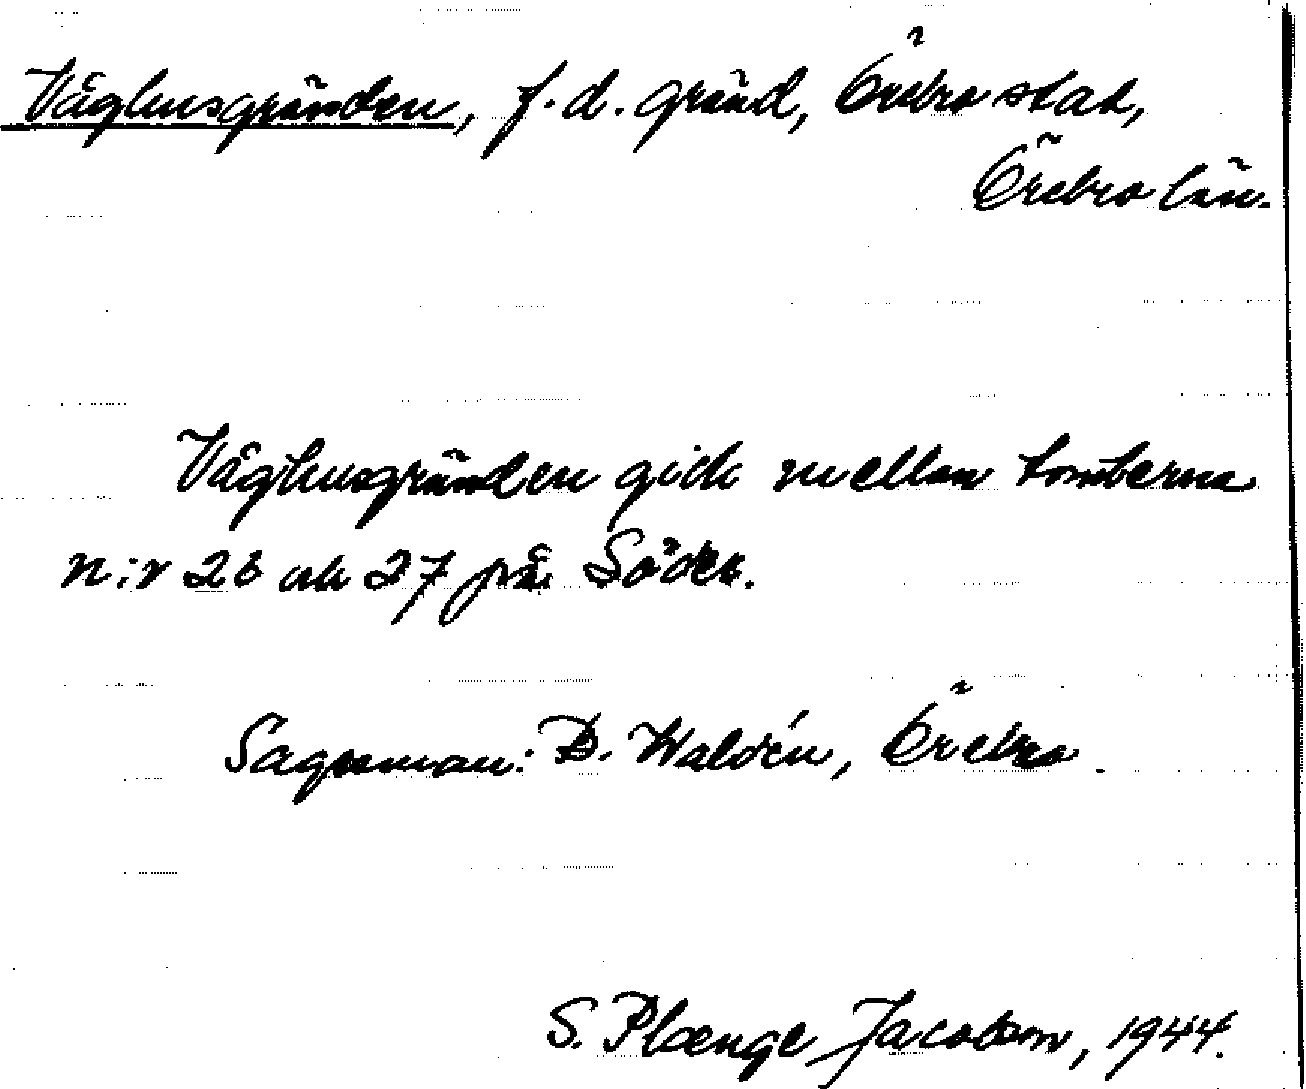 Våghusgränden, f. d. gränd, Örebro stad,
Örebro län.
Våghusgränden gick mellan tomterna
n:r 26 och 27 på Söder.
Sagesman: B. Waldén, Örebro.
S. Plænge Jacobson, 1944.